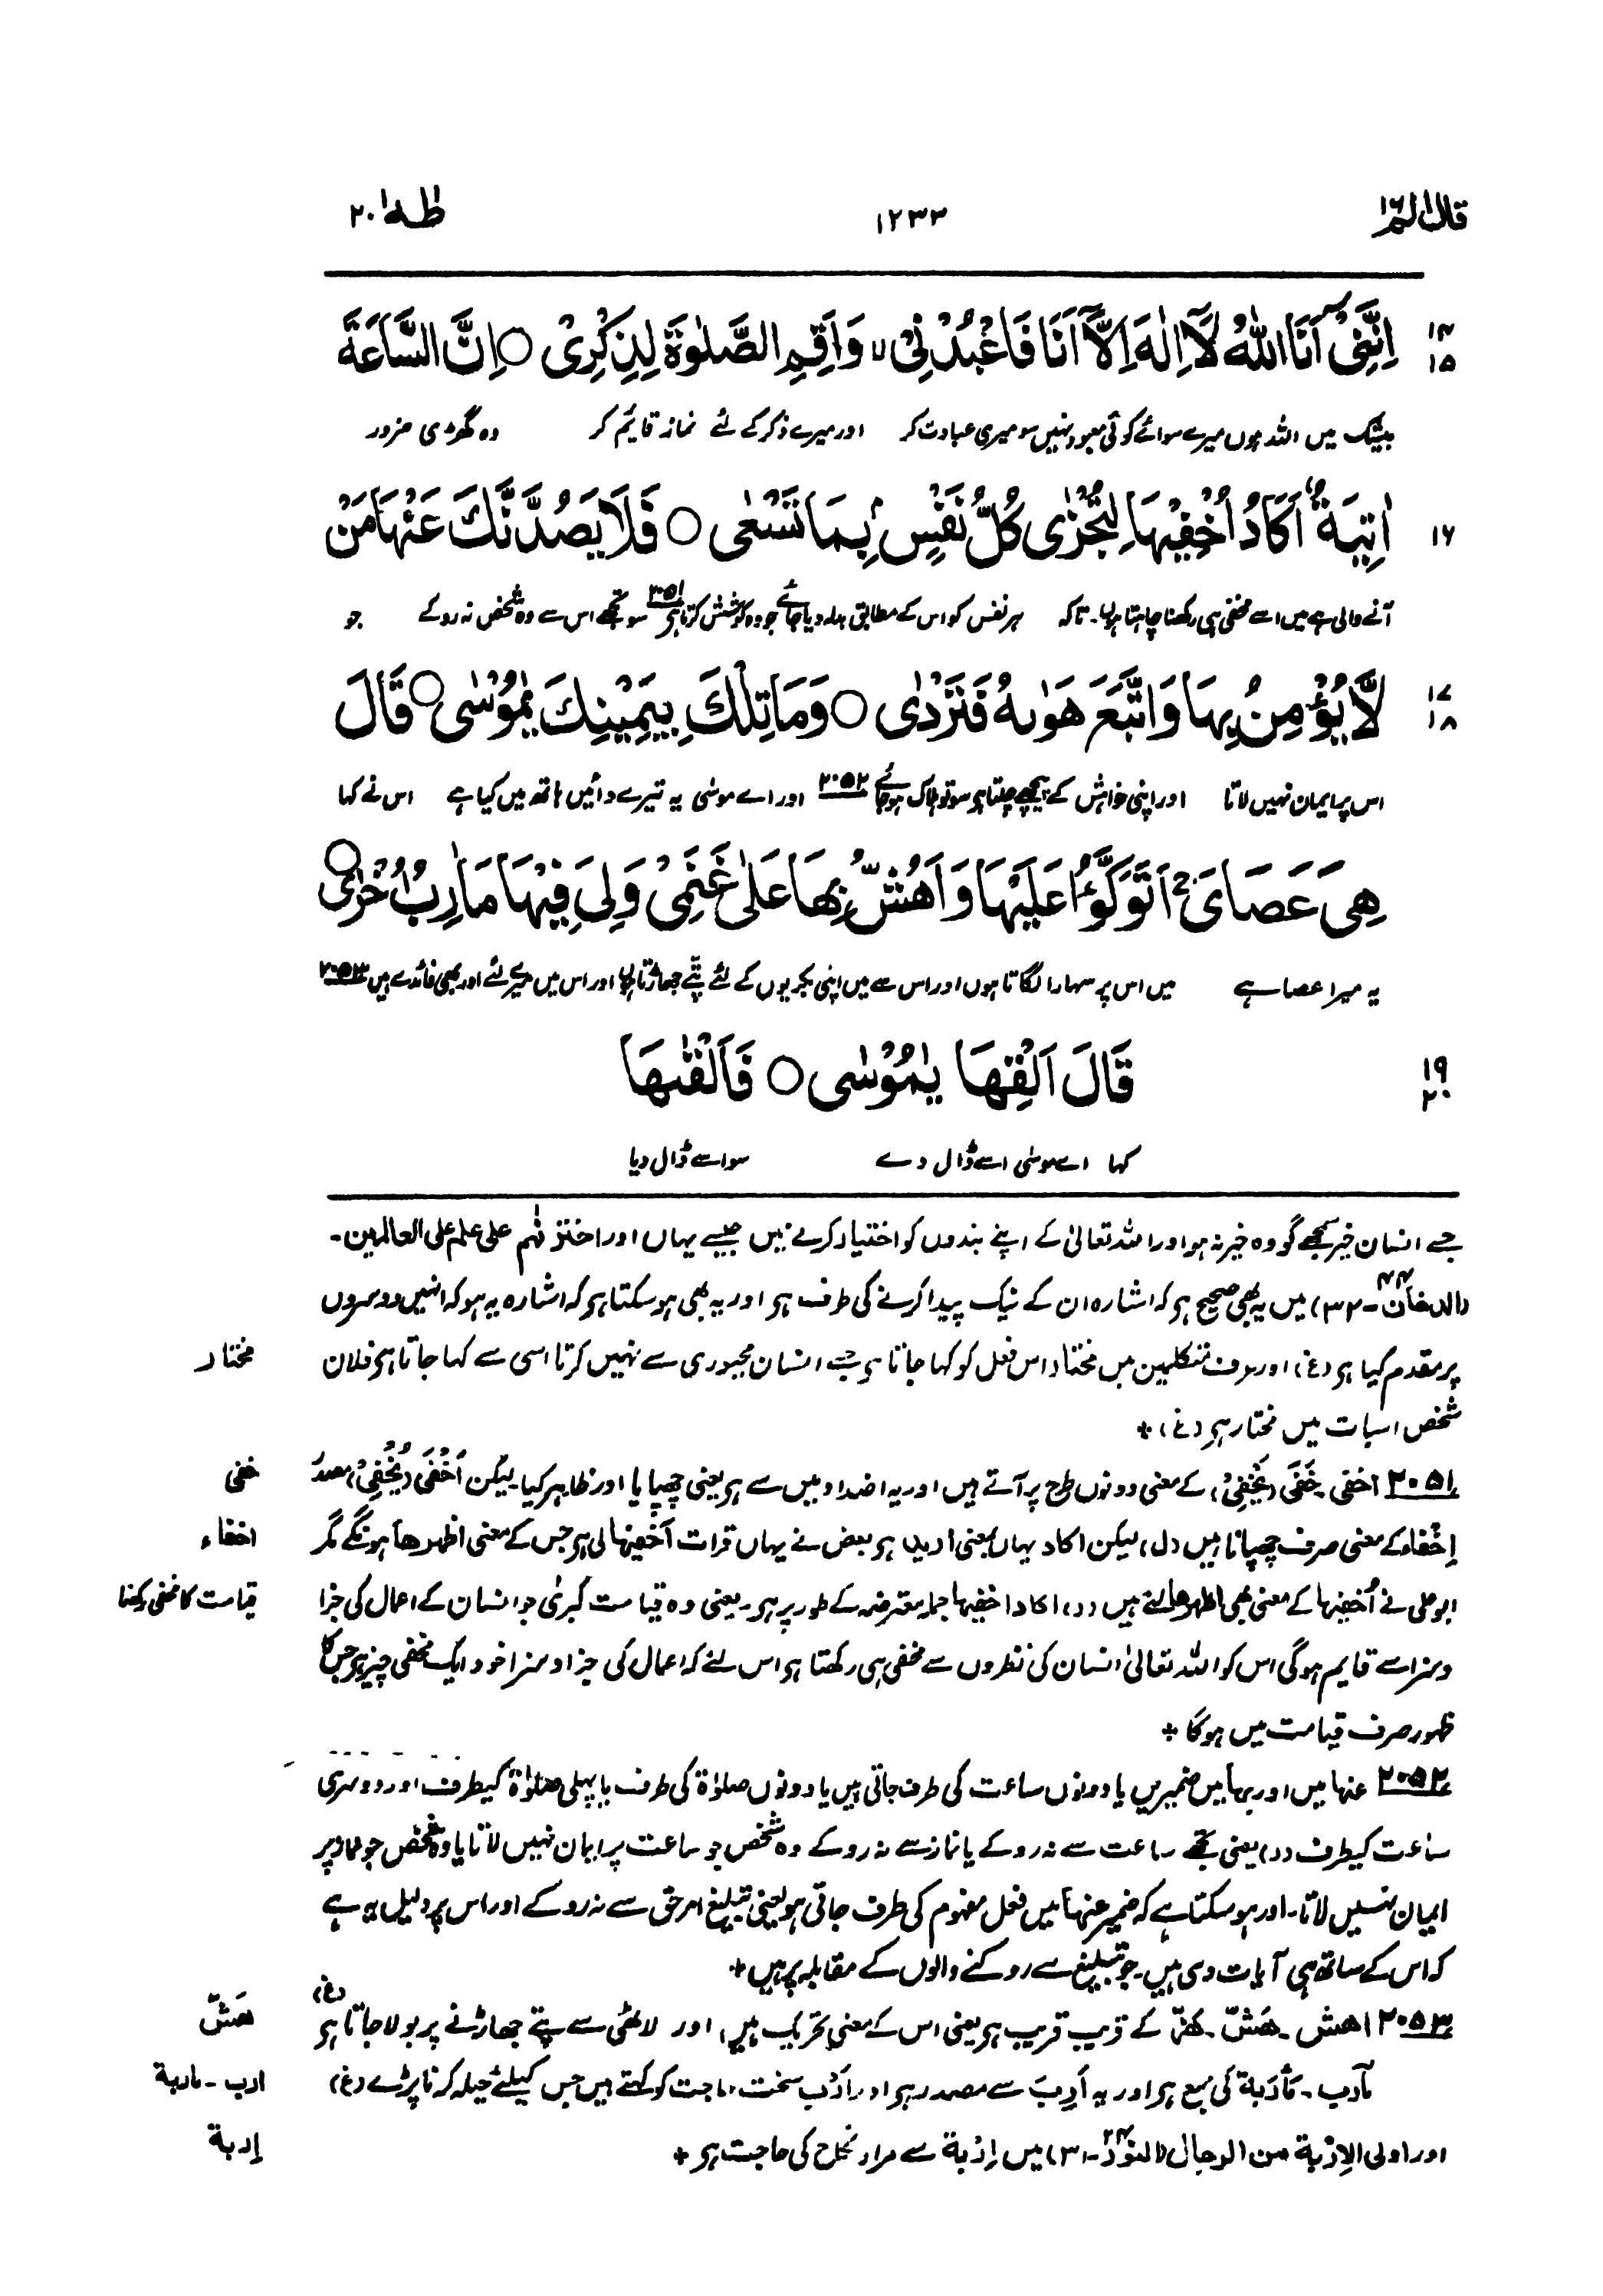 قال الم ١٦
١٢٣٣
طٰهٰ ٢٠
١٤ ١٥
اِنَّنِیْۤ اَنَا اللّٰهُ لَاۤ اِلٰهَ اِلَّاۤ اَنَا فَاعْبُدْنِیْ ۙ وَاَقِمِ الصَّلٰوةَ لِذِكْرِیْ ○ اِنَّ السَّاعَةَ
بیشک میں اللہ ہوں میرے سوائے کوئی معبود نہیں سو میری عبادت کر اور میرے ذکر کے لئے نماز قایم کر وہ گھڑی ضرور
١٦
اٰتِیَةٌ اَكَادُ اُخْفِیْهَا لِتُجْزٰی كُلُّ نَفْسٍۭ بِمَا تَسْعٰی ○ فَلَا یَصُدَّنَّكَ عَنْهَا مَنْ
آنے والی ہے میں اسے مخفی ہی رکھنا چاہتا ہوں۔ تاکہ ہر نفس کو اس کے مطابق بدلہ دیا جائے جو وہ کوشش کرتا ہے ٢٠٥١ سو تجھے اس سے وہ شخص نہ روکے جو
١٧ ١٨
لَّا یُؤْمِنُ بِهَا وَاتَّبَعَ هَوٰىهُ فَتَرْدٰی ○ وَمَا تِلْكَ بِیَمِیْنِكَ یٰمُوْسٰی ○ قَالَ
اس پر ایمان نہیں لاتا اور اپنی خواہش کے پیچھے چلتا ہو سو تو ہلاک ہو جائے ٢٠٥٢ اور اے موسٰی یہ تیرے دائیں ہاتھ میں کیا ہے اس نے کہا
هِیَ عَصَایَ ۚ اَتَوَكَّؤُا عَلَیْهَا وَاَهُشُّ بِهَا عَلٰی غَنَمِیْ وَلِیَ فِیْهَا مَاٰرِبُ اُخْرٰی ○
یہ میرا عصا ہے میں اس پر سہارا لگاتا ہوں اور اس سے میں اپنی بکریوں کے لئے پتے جھاڑتا ہوں اور اس میں میرے لئے اور بھی فائدے ہیں ٢٠٥٣
١٩ ٢٠
قَالَ اَلْقِهَا یٰمُوْسٰی ○ فَاَلْقٰىهَا
کہا اے موسٰی اسے ڈال دے سو اسے ڈال دیا
جسے انسان خیر سمجھے گو وہ خیر نہ ہو اور اللہ تعالیٰ کے اپنے بندوں کو اختیار کرنے میں جیسے یہاں اور اخترنٰهم علی علم علی العالمین۔
(الدخان ٤٤-٣٢) میں یہ بھی صحیح ہو کہ اشارہ ان کے نیک پیدا کرنے کی طرف ہو اور یہ بھی ہو سکتا ہو کہ اشارہ یہ ہو کہ انہیں دوسروں
پر مقدم کیا ہو (غ) اور عرف متکلمین میں مختار اس فعل کو کہا جاتا ہو جسے انسان مجبوری سے نہیں کرتا اسی سے کہا جاتا ہو فلان
مختار
شخص اسبات میں مختار ہو (غ) *
٢٠٥١ اخفی۔ خَفَی (یَخْفِیْ) کے معنی دونوں طرح پر آتے ہیں اور یہ اضداد میں سے ہو یعنی چھپایا اور ظاہر کیا۔ لیکن اَخْفَی (یُخْفِیْ) مصدر
خفی
اِخْفَاء کے معنی صرف چھپانا ہیں (ل) لیکن اکاد یہاں بمعنی اُرید ہو بعض نے یہاں قرات اَخفیها لی ہو جس کے معنی اظهرها ہونگے مگر
اخفاء
ابو علی نے اُخفیها کے معنی بھی اظهرها لئے ہیں (د) اکاد اخفیها جملہ معترضہ کے طور پر ہو۔ یعنی وہ قیامت کبریٰ جو انسان کے اعمال کی جزا
قیامت کا مخفی رکھنا
و سزا سے قایم ہو گی اس کو اللہ تعالیٰ انسان کی نظروں سے مخفی ہی رکھتا ہو اس لئے کہ اعمال کی جزا و سزا خود ایک مخفی چیز ہو جس کا
ظہور صرف قیامت میں ہو گا *
٢٠٥٢ عنها میں اور بها میں ضمیریں یا دونوں ساعت کی طرف جاتی ہیں یا دونوں صلوٰۃ کی طرف یا پہلی صلوٰۃ کیطرف اور دوسری
ساعت کیطرف (د) یعنی تجھے ساعت سے نہ روکے یا نماز سے نہ روکے وہ شخص جو ساعت پر ایمان نہیں لاتا یا وہ شخص جو نماز پر
ایمان نہیں لاتا۔ اور ہو سکتا ہے کہ ضمیر عنها میں فعل مفہوم کی طرف جاتی ہو یعنی تبلیغ امر حق سے نہ روکے اور اس پر دلیل یہ ہے
کہ اس کے ساتھ ہی آیات دی ہیں۔ جو تبلیغ سے روکنے والوں کے مقابلہ پر ہیں *
٢٠٥٣ اهش۔ هَشّ۔ هَزّ کے قریب قریب ہو یعنی اس کے معنی تحریک ہیں، اور لاٹھی سے پتے جھاڑنے پر بولا جاتا ہو (غ)
هَشّ
مآرب۔ مَأْرَبة کی جمع ہو اور یہ اَرِبَ سے مصدر ہو اور اَرَب سخت حاجت کو کہتے ہیں جس کیلئے حیلہ کرنا پڑے (غ)
ارب۔ ماربة
اور اولی الاِرْبة من الرجال (النور ٢٤-٣١) میں اِرْبة سے مراد نکاح کی حاجت ہو *
اِربة